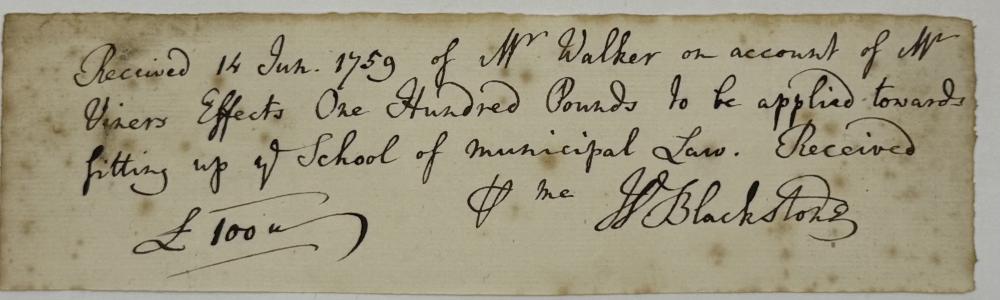 Received 14 Jun. 1759 of Mr Walker on account of Mr
Viners Effects One Hundred Pounds to be applied towards
fitting up ye School of municipal Law. Received
⅌ me Wm Blackstone
£ 100 "